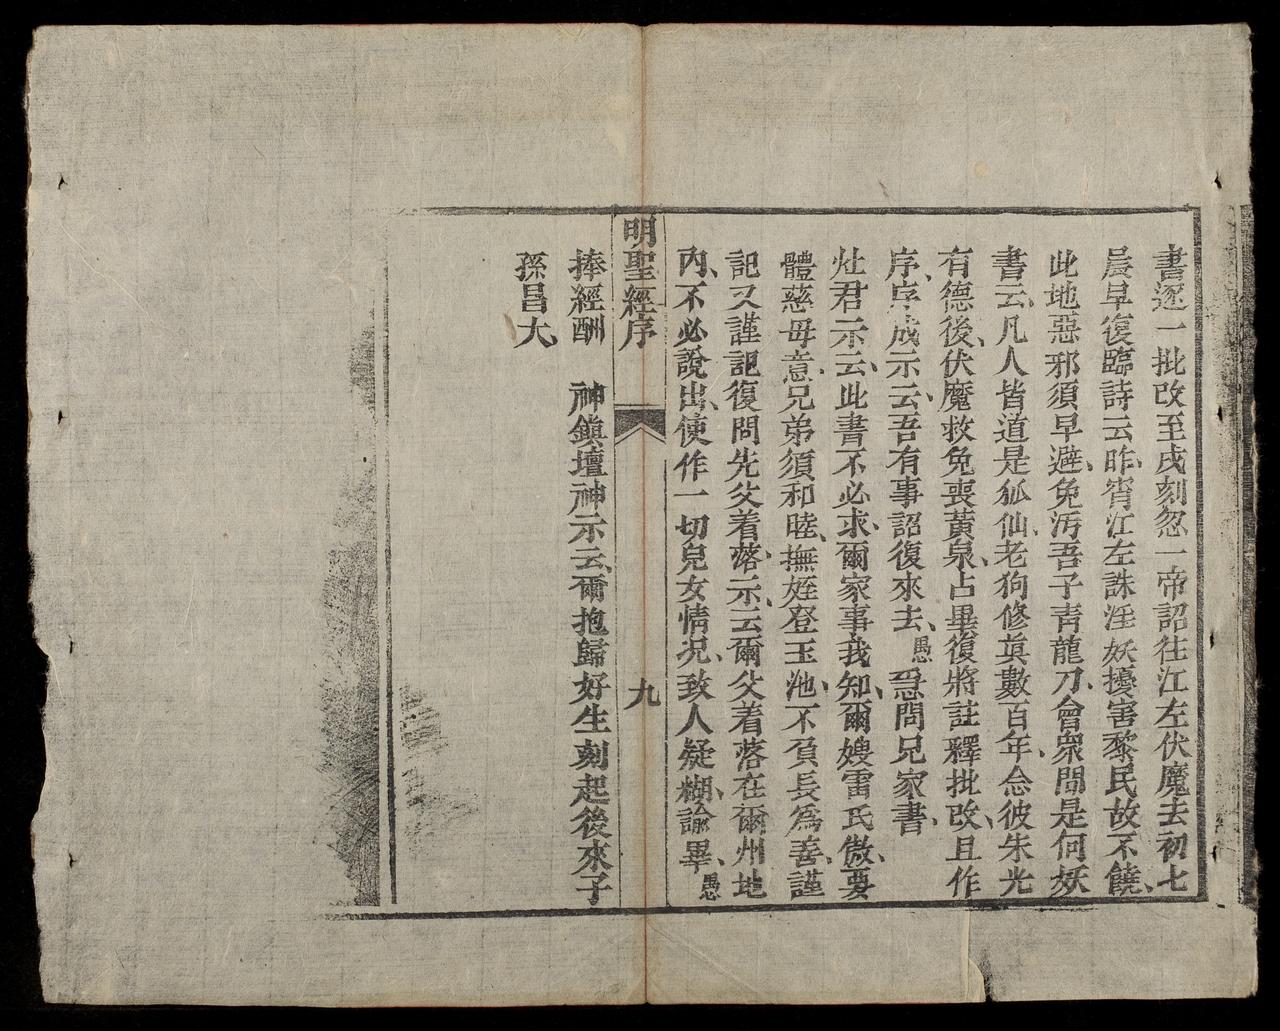 書逐一批改至戌刻忽一帝詔往江左伏魔去初七
晨早復臨詩云昨宵江左誅淫妖擾害黎民故不饒
此地惡邪須早避免汚吾子青龍刀會衆問是何妖
書云凡人皆道是狐仙老狗修眞數百年念彼朱光
有德後伏魔救免喪黃泉占畢復將註釋批改且作
序序成示云吾有事詔復來去愚 問兄家書
灶君示云此書不必求爾家事我知爾嫂雷氏傲要
體慈母意兄弟須和睦撫姪登玉池不負長爲善謹
記又謹記復問先父着落示云爾父着落在爾州地
內不必說出使作一切兒女情况致人疑糊諭畢愚
明聖經序 九
捧經酬 神鎮壇神示云爾抱歸好生刻起後來子
孫昌大